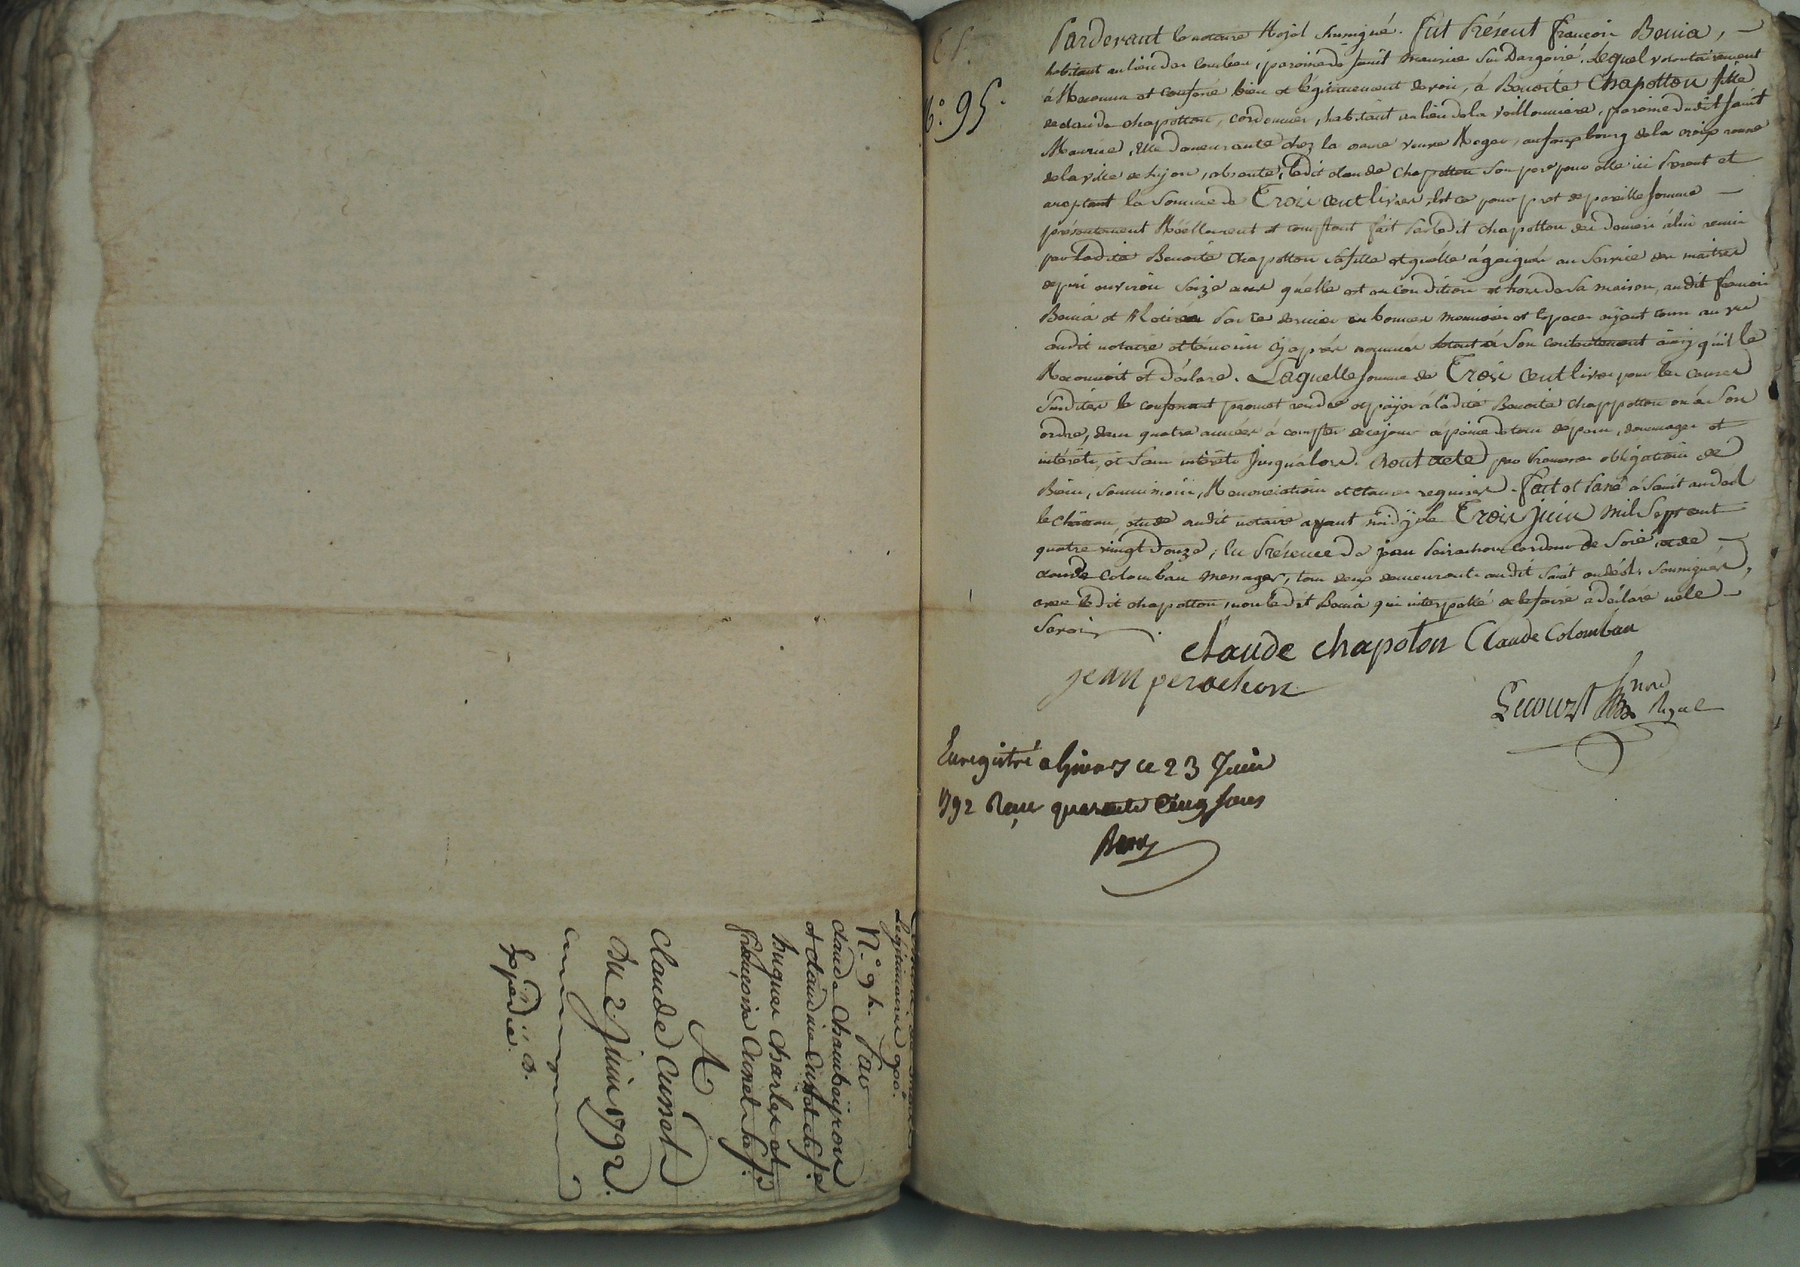 legitimaires
N.º 94. par
Claude Chambeÿron
et Claudine Cunet
hugues Charles et
françoise Cunet
A
Claude Cunet
Du 2 Juin 1792.
Expédié.
N.º 95.
Pardevant le notaire Royal soussigné. fut Présent françois Bouia,
habitant au lieu des combes, paroisse de saint maurice sur Dargoire, Lequel volontairement
à Reconnu et confessé bien et légitimement devoir, à Benoite Chapotton fille
de claude chapotton, cordonnier, habitant au lieu de la, paroisse dudit saint
Maurice, Elle demeurante chez la veuve Roger, au fauxbourg de la croix rousse
de la ville de Lyon, absente, ledit claude Chapotton son pere pour elle ici present et
acceptant la Somme de Trois cent livres, Et ce pour pret de pareille somme
présentement Réellement et comptant fait par ledit chapotton des deniers à lui remis
par ladite Benoite Chapotton sa fille et quelle à gaigné au service des maitres
depuis environ seize ans quelle est en condition et hors de sa maison, audit francois
Bouia et Retirée par ce dernier en bonnes monnoies et especes ayant cours au vu
dudit notaire et témoins cy après nommés à son contentement ainsy qu'il le
Reconnoit et déclare. Laquelle somme de Trois cent livres pour les causes
susdites le confessant promet rendre et payer à ladite Benoite Chappotton ou à son
ordre, dans quatre années à compter de ce jour à peine de tous depens, dommages et
intérêts, et sans intérêts jusqu'alors. par obligation de
Biens, soumissions, Renonciations et clauses requises. fait et passé à Saint andéol
le château, étude dudit notaire avant midÿ le Trois juin mil sept cent
quatre vingt douze, En Présence de jean de Soie, et de
claude Colomban menager, tous deux demeurants audit saint andéol, soussignés,
avec ledit chapotton, non ledit Bouia qui interpellé de le faire a déclaré ne le
Savoir.
claude chapoton Claude Colomban
jean perachon
nore
Royal
Enregistré a Givors ce 23 Juin
1792 Reçu quarante cinq sous